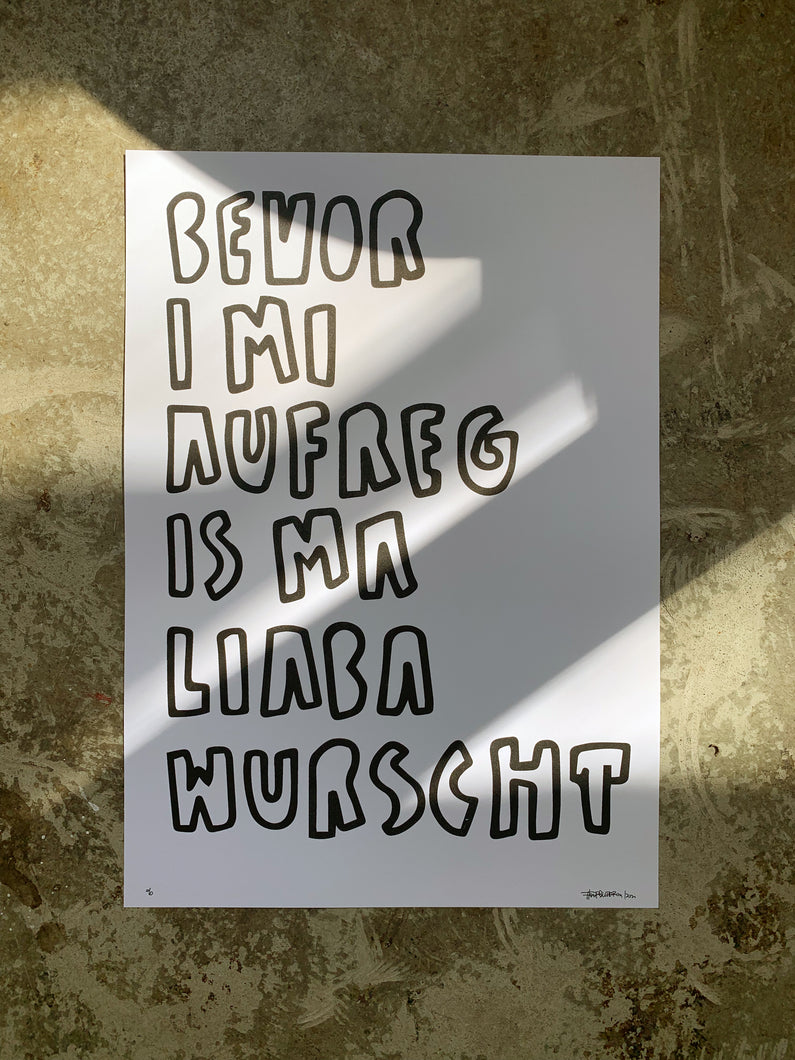 BEVOR
I MI
AUFREG
IS MA
LIABA
WURSCHT